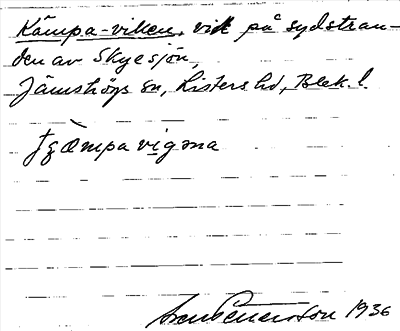 Kämpa-viken, vik på sydstran-
den av Skyesjön,
Jämshögs sn, Listers hd, Blek. l.
1936